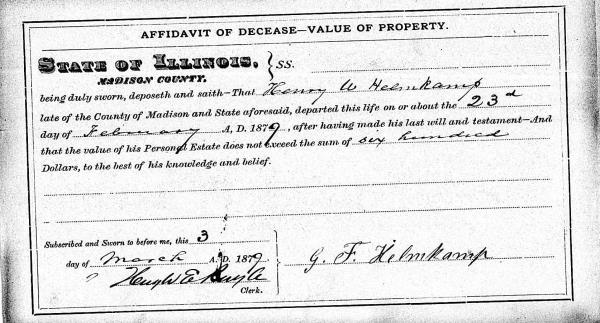 AFFIDAVIT OF DECEASE—VALUE OF PROPERTY.
STATE OF ILLINOIS, } SS.
MADISON COUNTY.
being duly sworn, deposeth and saith—That Henry W Helmkamp
late of the County of Madison and State aforesaid, departed this life on or about the 23d
day of February A. D. 1879, after having made his last will and testament—And
that the value of his Personal Estate does not exceed the sum of six hundred
Dollars, to the best of his knowledge and belief.
Subscribed and Sworn to before me, this 3
day of March A. D. 1879
G. F. Helmkamp
Clerk.